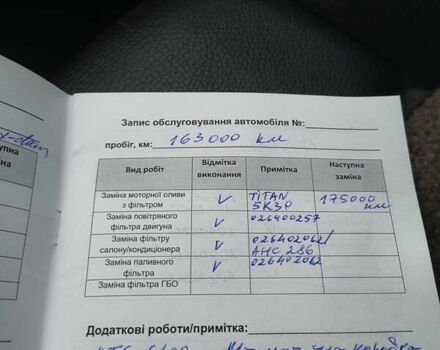 Запис обслуговування автомобіля №:
пробіг, км: 163000 км
Вид робіт
Відмітка виконання
Примітка
Наступна заміна
Заміна моторної оливи з фільтром
V
TITAN 5К30
175000 км
Заміна повітряного фільтра двигуна
V
026400257
Заміна фільтру салону/кондиціонера
V
026402062/ АНС 286
Заміна паливного фільтра
V
026402062
Заміна фільтра ГБО
Додаткові роботи/примітка: